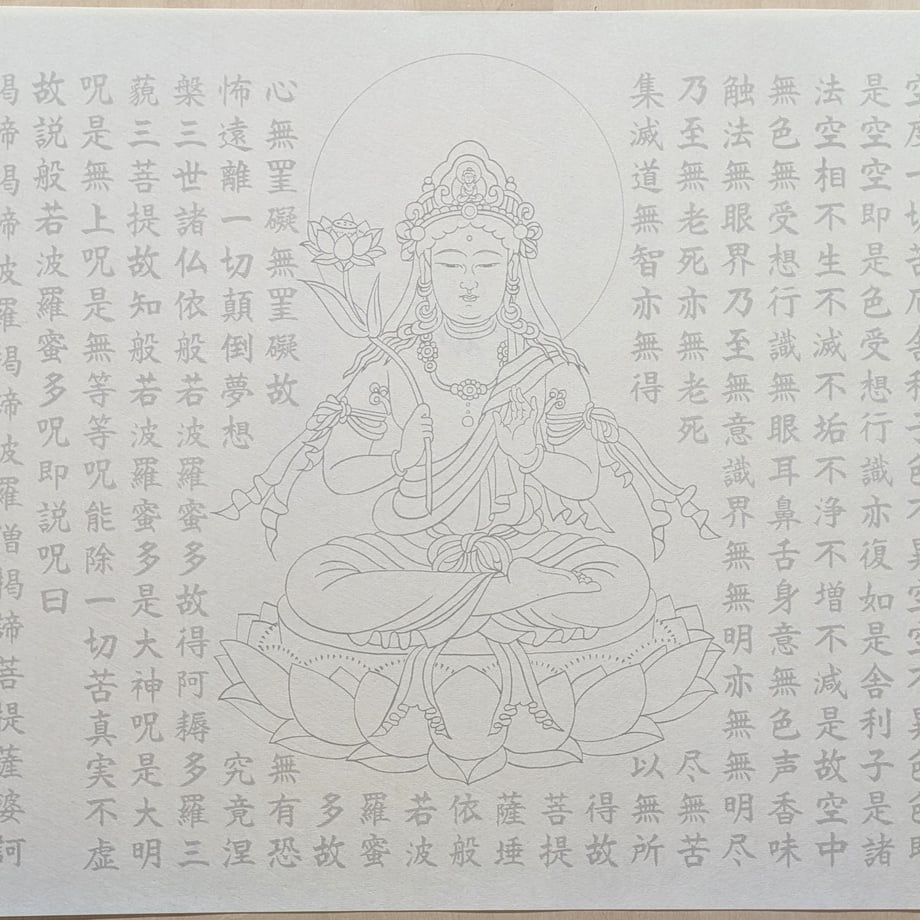 空度一切苦厄舎利子色不異空空不異色色即
是空空即是色受想行識亦復如是舎利子是諸
法空相不生不滅不垢不浄不増不減是故空中
無色無受想行識無眼耳鼻舌身意無色声香味
触法無眼界乃至無意識界無無明亦無無明尽
乃至無老死亦無老死
尽無苦
集滅道無智亦無得
以無所
得故
菩提
薩埵
依般
若波
羅蜜
多故
心無罣礙無罣礙故
無有恐
怖遠離一切顛倒夢想
究竟涅
槃三世諸仏依般若波羅蜜多故得阿耨多羅三
藐三菩提故知般若波羅蜜多是大神呪是大明
呪是無上呪是無等等呪能除一切苦真実不虚
故説般若波羅蜜多呪即説呪曰
掲諦掲諦波羅掲諦波羅僧掲諦菩提薩婆訶